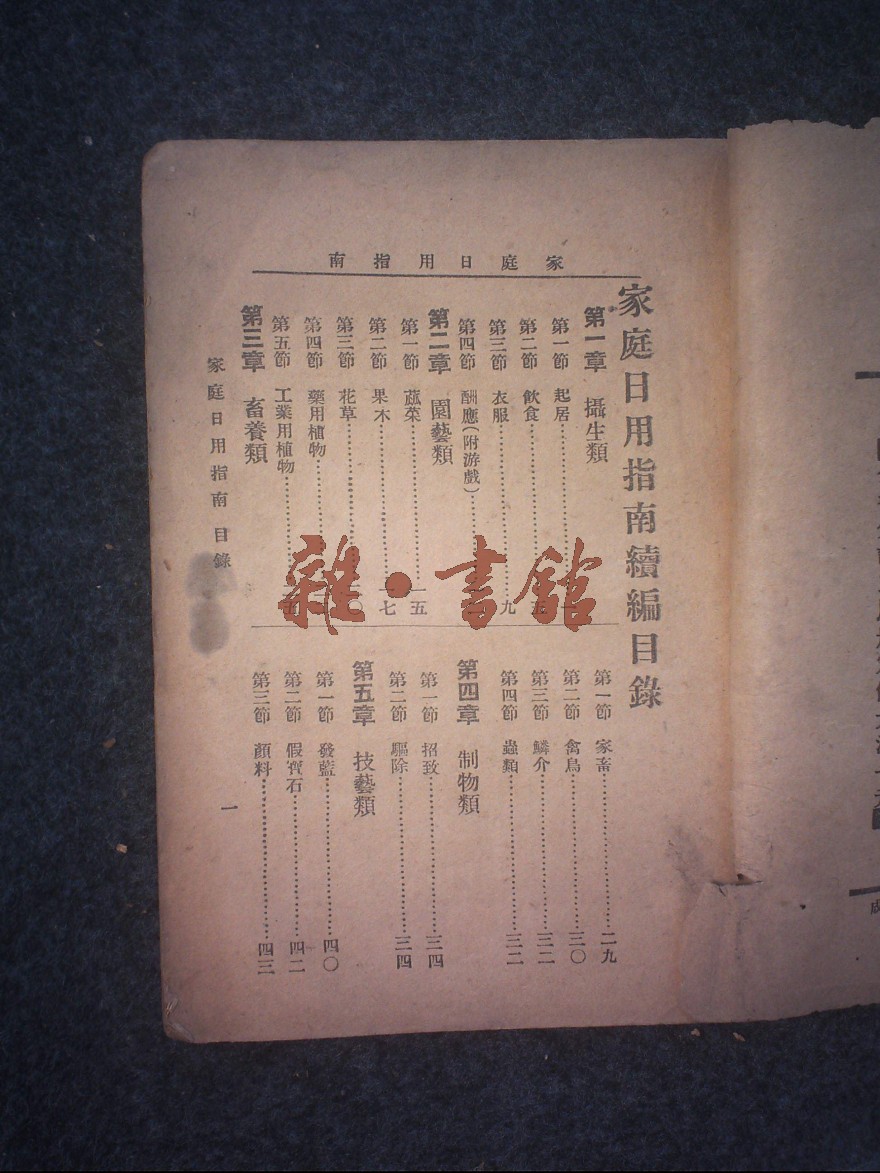 家庭日用指南
家庭日用指南續編目錄
第一章 攝生類
第一節 起居……一
第二節 飲食……五
第三節 衣服……九
第四節 酬應(附游戲)……
第二章 園藝類
第一節 蔬菜……一五
第二節 果木……一七
第三節 花草……二〇
第四節 藥用植物……
第五節 工業用植物……
第三章 畜養類
第一節 家畜……二九
第二節 禽鳥……三〇
第三節 鱗介……三二
第四節 蟲類……三二
第四章 制物類
第一節 招致……三四
第二節 驅除……三四
第五章 技藝類
第一節 發藍……四〇
第二節 假寶石……四二
第三節 顏料……四三
家庭日用指南 目錄
一
雜·書館